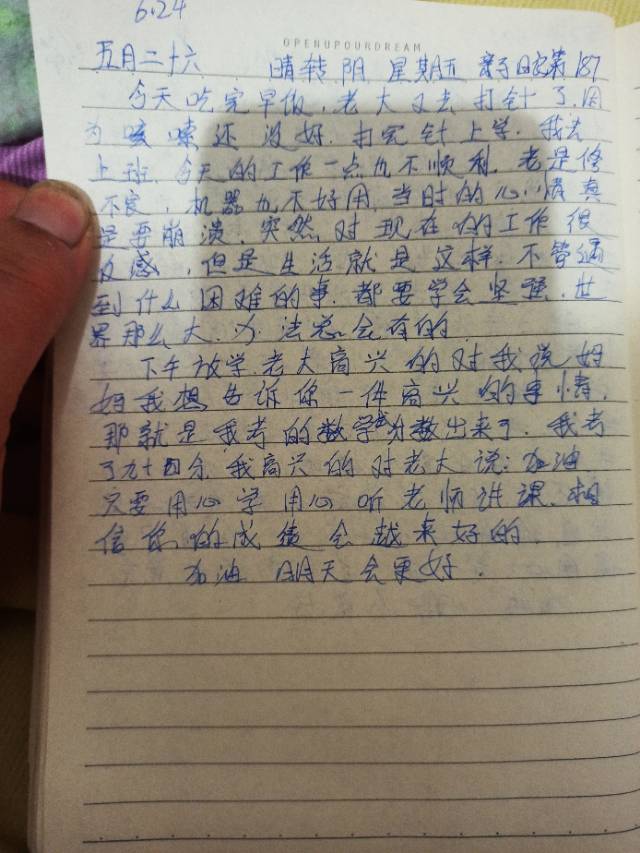 6.24
OPENUPOURDREAM
五月二十六 晴转阴 星期五 亲子日记第187
今天吃完早饭,老大又去打针了,因
为咳嗽还没好.打完针上学.我去
上班,今天的工作一点也不顺利,老是修
不良,机器也不好用,当时的心情真
是要崩溃.突然对现在的工作很
反感,但是生活就是这样.不管遇
到什么困难的事.都要学会坚强.世
界那么大.办法总会有的
下午放学.老大高兴的对我说妈
妈我想告诉你一件高兴的事情,
那就是我考的数学分数出来了.我考
了九十四分,我高兴的对老大说:加油
只要用心学用心听老师讲课.相
信你的成绩会越来好的
加油 明天会更好.